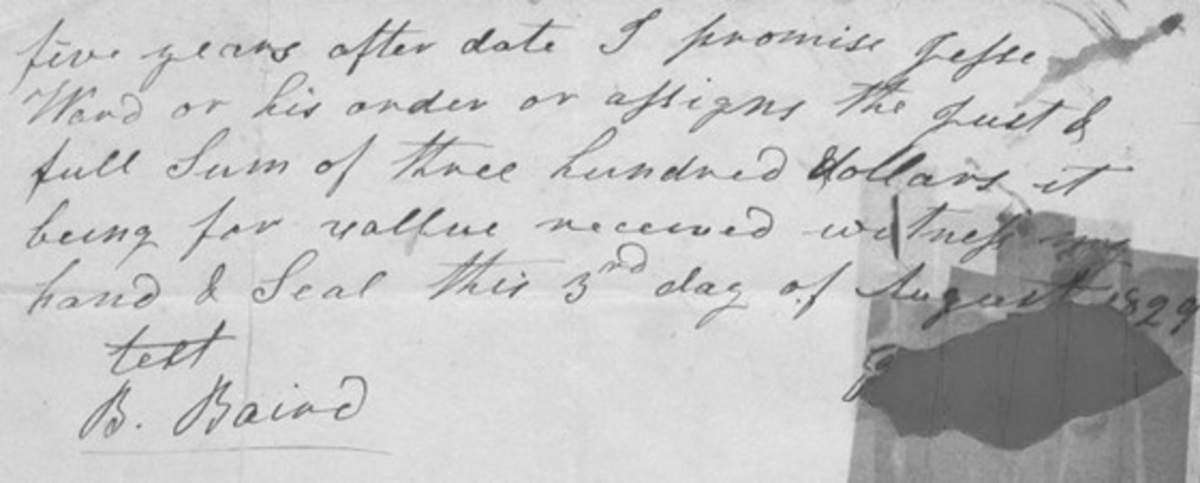 five years after date I promise Jesse
Ward or his order or assigns the Just &
full Sum of three hundred dollars it
being for vallue received witness my
hand & Seal this 3rd day of August 1829
test
B. Baird